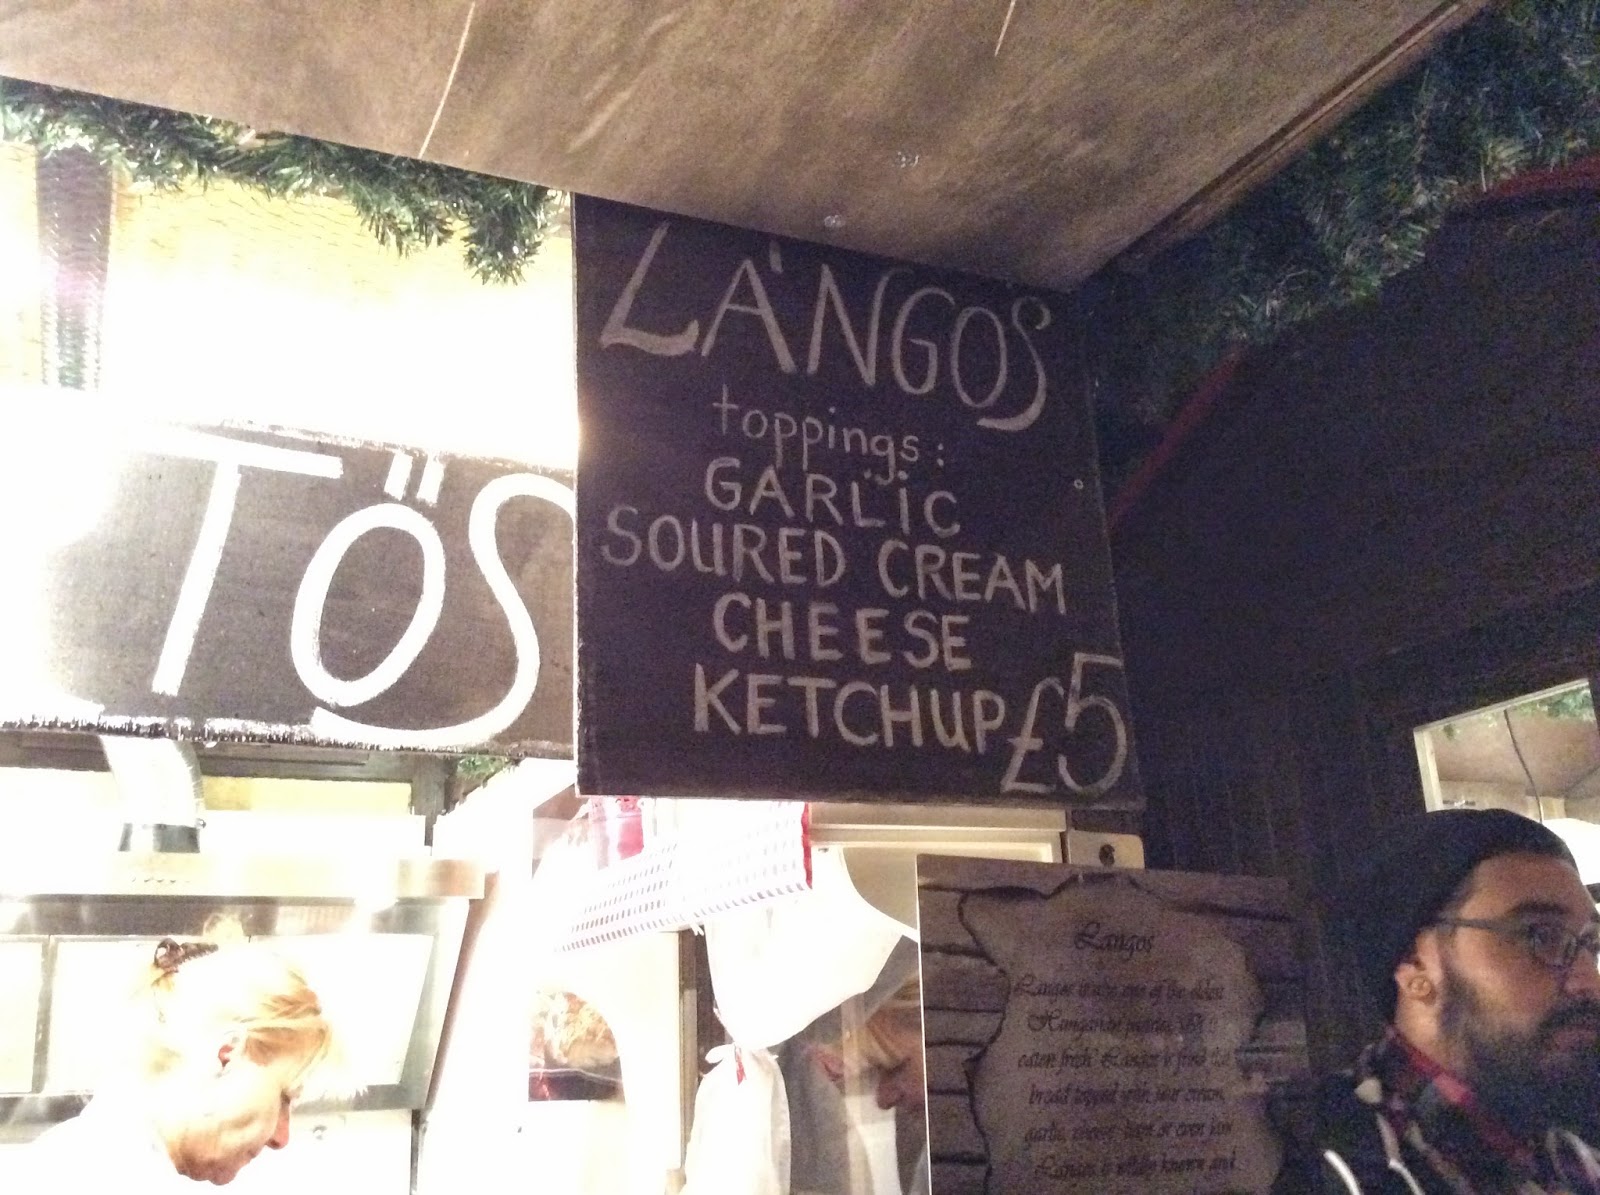 TÖS
LÁNGOS
toppings:
GARLIC
SOURED CREAM
CHEESE
KETCHUP £5
Langos
Langos is one of the oldest
Hungarian
eaten fresh. Langos is fried flat
bread topped with sour cream,
garlic, cheese, ham or even
Langos is widely known and